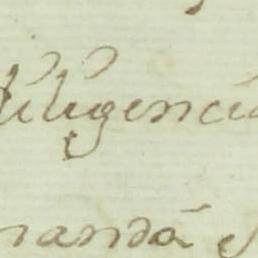 diligencia
mandã